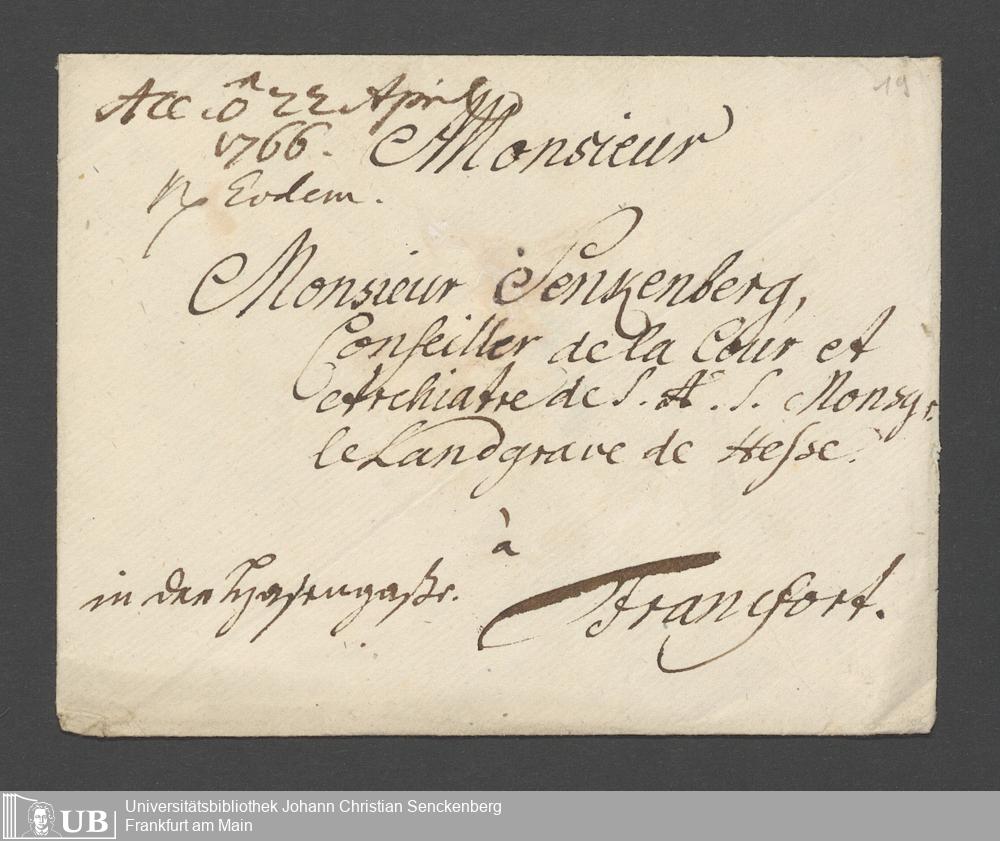 19
Acc 22 April
1766.
Monsieur
Eodem.
Monsieur Senkenberg,
Conseiller de la Cour et
Archiatre de S. A. S. Monsgr.
le Landgrave de Hesse.
à
in der Hasengaße.
Francfort.
UB
Universitätsbibliothek Johann Christian Senckenberg
Frankfurt am Main